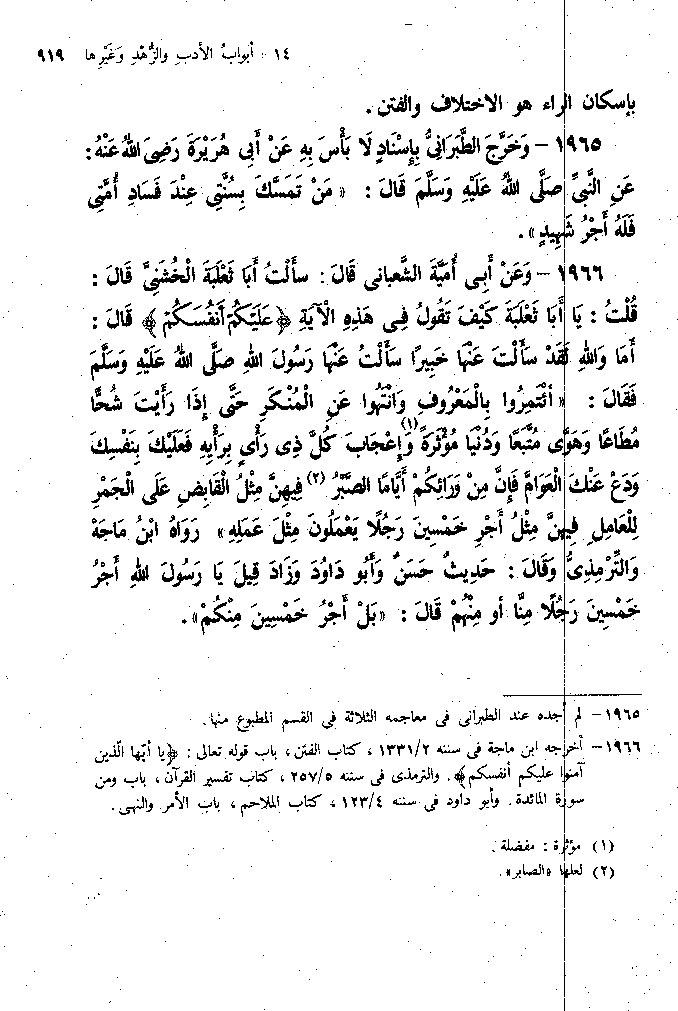 ١٤ - أبوابُ الأدبِ والزُّهْدِ وَغَيْرِها ٩١٩
بإسكان الراء هو الاختلاف والفتن .
١٩٦٥ – وَخَرَّجَ الطَّبَرَانِيُّ بِإِسْنَادٍ لَا بَأْسَ بِهِ عَنْ أَبِي هُرَيْرَةَ رَضِىَ اللهُ عَنْهُ :
عَنِ النَّبِيِّ صَلَّى اللهُ عَلَيْهِ وَسَلَّمَ قَالَ : « مَنْ تَمَسَّكَ بِسُنَّتِي عِنْدَ فَسَادِ أُمَّتِي
فَلَهُ أَجْرُ شَهِيدٍ» .
١٩٦٦ – وَعَنْ أَبِى أُمَيَّةَ الشَّعبانى قَالَ : سأَلْتُ أَبَا ثَعْلَبَةَ الْخُشَنِىَّ قَالَ :
قُلْتُ : يَا أَبَا ثَعْلَبَةَ كَيْفَ تَقُولُ فِى هَذِهِ الْآيَةِ ﴿عَلَيْكُمْ أَنفُسَكُمْ﴾ قَالَ :
أَمَا وَاللهِ لَقَدْ سَأَلْتَ عَنْهَا خَبِيرًا سَأَلْتُ عَنْهَا رَسُولَ اللهِ صَلَّى اللهُ عَلَيْهِ وَسَلَّمَ
فَقَالَ : « ائْتَمِرُوا بِالْمَعْرُوفِ وَانْتَهُوا عَنِ الْمُنْكَرِ حَتَّى إِذَا رَأَيْتَ شُحًّا
مُطَاعًا وَهَوًى مُتَّبَعًا وَدُنْيَا مُؤْثَرَةً (١) وَإِعْجَابَ كُلِّ ذِى رَأْيٍ بِرَأْيِهِ فَعَلَيْكَ بِنَفْسِكَ
وَدَعْ عَنْكَ الْعَوَامَّ فَإِنَّ مِنْ وَرَائِكُمْ أَيَّامًا الصَّبْرُ (٢) فِيهِنَّ مِثْلُ الْقَابِضِ عَلَى الْجَمْرِ
لِلْعَامِلِ فِيهِنَّ مِثْلُ أَجْرِ خَمْسِينَ رَجُلًا يَعْمَلُونَ مِثْلَ عَمَلِهِ» رَوَاهُ ابْنُ مَاجَهْ
وَالتِّرْمِذِىُّ وَقَالَ : حَدِيثٌ حَسَنٌ وَأَبُو دَاوُدَ وَزَادَ قِيلَ يَا رَسُولَ اللهِ أَجْرُ
خَمْسِينَ رَجُلًا مِنَّا أو مِنْهُمْ قَالَ : «بَلْ أَجْرُ خَمْسِينَ مِنْكُمْ» .
١٩٦٥ – لم أجده عند الطبرانى فى معاجمه الثلاثة فى القسم المطبوع منها .
١٩٦٦ – أخرجه ابن ماجة فى سننه ١٣٣١/٢ ، كتاب الفتن ، باب قوله تعالى : ﴿يا أيّها الّذين
آمنوا عليكم أنفسكم﴾ . والترمذى فى سننه ٢٥٧/٥ ، كتاب تفسير القرآن ، باب ومن
سورة المائدة . وأبو داود فى سننه ١٢٣/٤ ، كتاب الملاحم ، باب الأمر والنهى .
(١) مؤثرة : مفضلة .
(٢) لعلها «الصابر» .